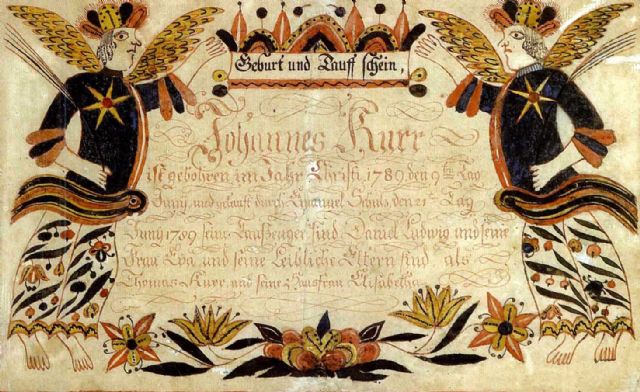 Geburt und Tauff schein,
Johannes Kurr
ist gebohren im Jahr Christi 1789 den 9ten Tag
Juny, und getauft durch Emanuel den 21ten Tag
Juny 1789 seine Taufzeuger sind Daniel Ludwig und seine
Frau Eva und seine Leibliche Eltern sind als
Thomas Kurr und seine Hausfrau Elisabetha